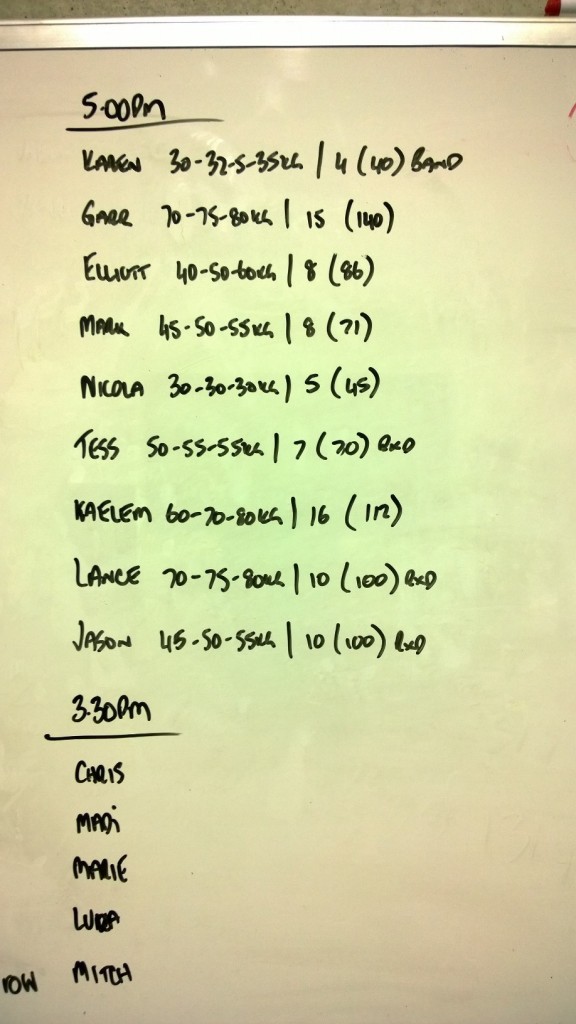 5.00PM
KAREN 30-32.5-35KG | 4 (40) BAND
GARR 70-75-80KG | 15 (140)
ELLIOTT 40-50-60KG | 8 (86)
MARK 45-50-55KG | 8 (71)
NICOLA 30-30-30KG | 5 (45)
TESS 50-55-55KG | 7 (70) RXD
KAELEM 60-70-80KG | 16 (112)
LANCE 70-75-80KG | 10 (100) RXD
JASON 45-50-55KG | 10 (100) RXD
3.30PM
CHRIS
MADi
MARIE
ROW MITCH